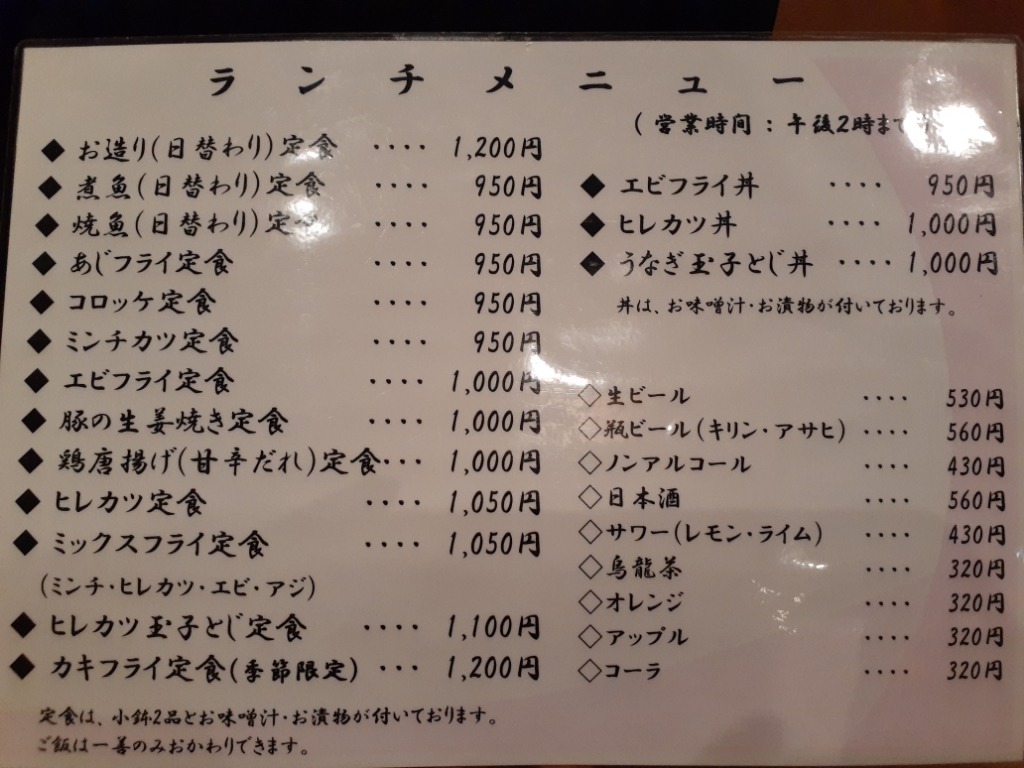 ランチメニュー
(営業時間:午後2時まで
◆お造り(日替わり)定食 ････ 1,200円
◆煮魚(日替わり)定食 ････ 950円
◆焼魚(日替わり)定食 ････ 950円
◆あじフライ定食 ････ 950円
◆コロッケ定食 ････ 950円
◆ミンチカツ定食 ････ 950円
◆エビフライ定食 ････ 1,000円
◆豚の生姜焼き定食 ････ 1,000円
◆鶏唐揚げ(甘辛だれ)定食･･･ 1,000円
◆ヒレカツ定食 ････ 1,050円
◆ミックスフライ定食 ････ 1,050円
(ミンチ・ヒレカツ・エビ・アジ)
◆ヒレカツ玉子とじ定食 ････ 1,100円
◆カキフライ定食(季節限定) ･･･ 1,200円
定食は、小鉢2品とお味噌汁・お漬物が付いております。
ご飯は一善のみおかわりできます。
◆エビフライ丼 ････ 950円
◆ヒレカツ丼 ････ 1,000円
◆うなぎ玉子とじ丼 ････ 1,000円
丼は、お味噌汁・お漬物が付いております。
◇生ビール ････ 530円
◇瓶ビール(キリン・アサヒ) ････ 560円
◇ノンアルコール ････ 430円
◇日本酒 ････ 560円
◇サワー(レモン・ライム) ････ 430円
◇烏龍茶 ････ 320円
◇オレンジ ････ 320円
◇アップル ････ 320円
◇コーラ ････ 320円